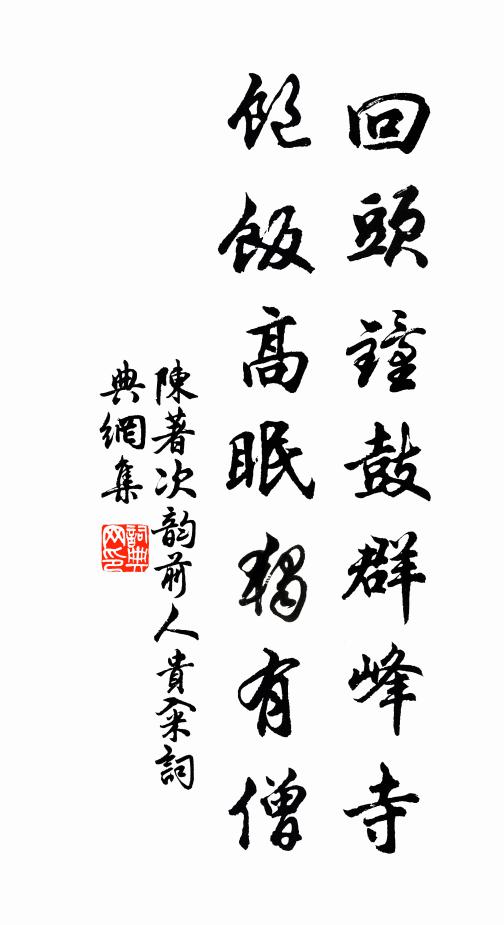 回頭鐘鼓群峰寺
飽飯高眠獨有僧
陳著次韵前人貴籴詞
典網集
詞典網印